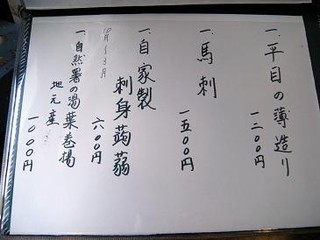 一、平目の薄造り
一二〇〇円
一、馬刺
一五〇〇円
一、自家製
刺身蒟蒻
10月〜3月
六〇〇円
一、自然薯の湯葉巻揚
地元産
一〇〇〇円